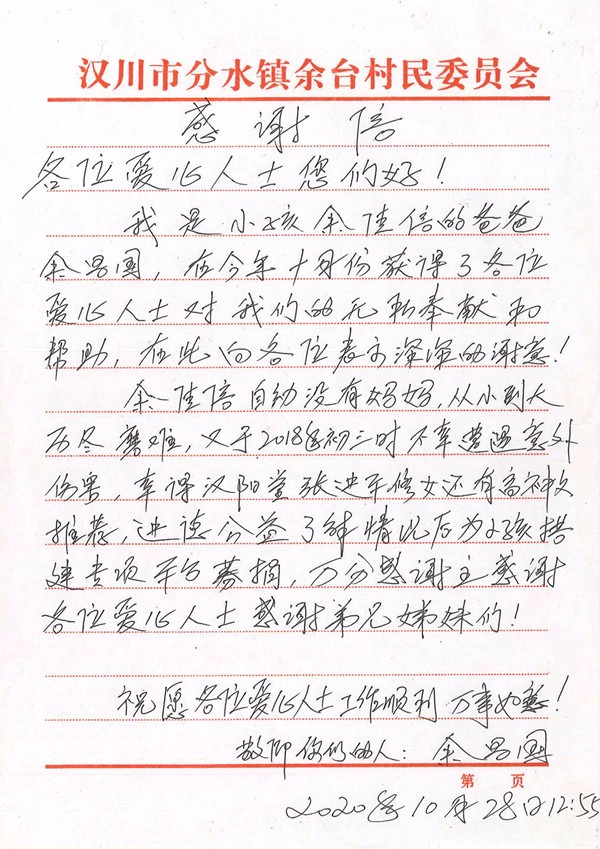 汉川市分水镇余台村民委员会
感谢信
各位爱心人士您们好！
我是小孩余佳倍的爸爸
余昌国，在今年十月份获得了各位
爱心人士对我们的无私奉献和
帮助，在此向各位表示深深的谢意！
余佳倍自幼没有妈妈，从小到大
历尽磨难，又于2018年初三时不幸遭遇意外
伤害，幸得汉阳堂张进平修女还有高神父
推荐，进德公益了解情况后为小孩搭
建专项平台募捐，万分感谢主感谢
各位爱心人士感谢弟兄姊妹们！
祝愿各位爱心人士工作顺利万事如意！
敬仰你们的人：余昌国
第 页
2020年10月28日12:55